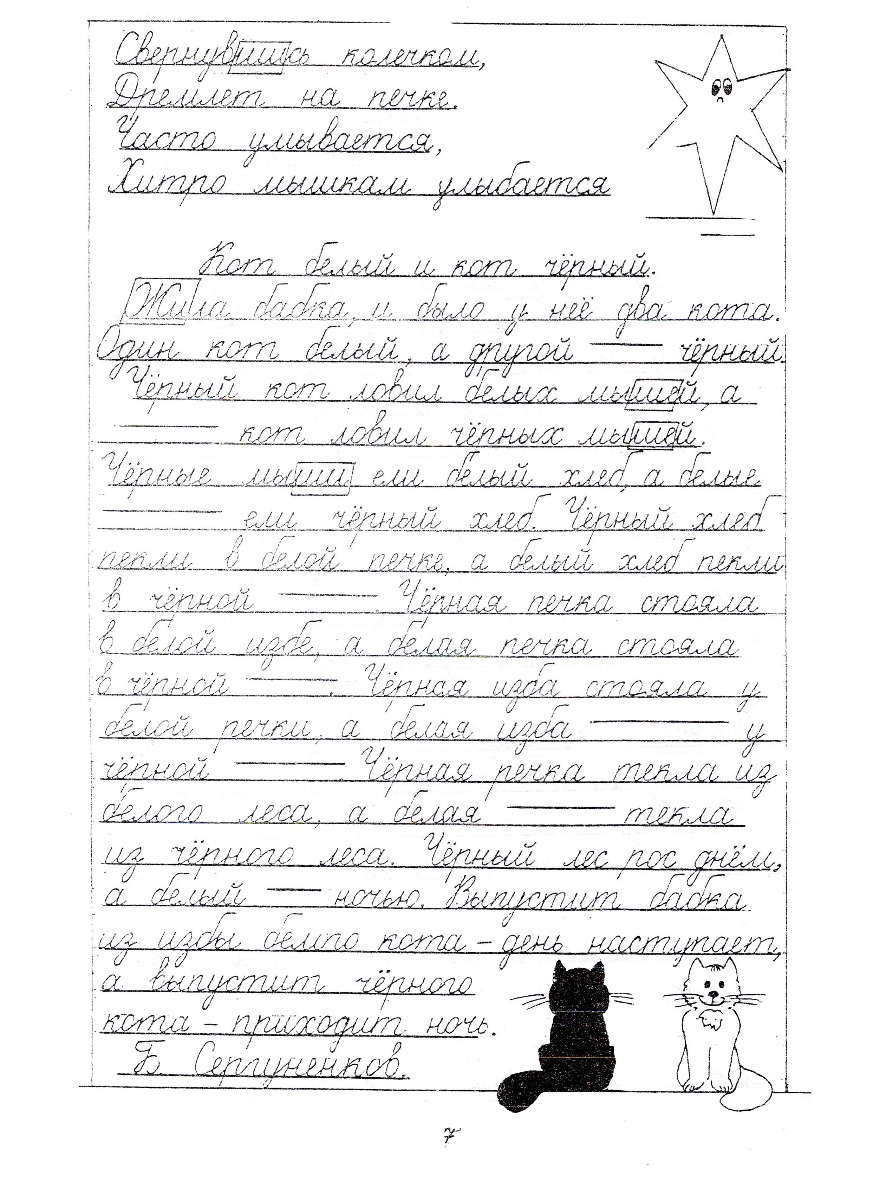 Свернувшись колечком,
Дремлет на печке.
Часто умывается,
Хитро мышкам улыбается
Кот белый и кот чёрный.
Жила бабка, и было у неё два кота.
Один кот белый, а другой ——— чёрный.
Чёрный кот ловил белых мышей, а
_____ кот ловил чёрных мышей.
Чёрные мыши ели белый хлеб, а белые
_____ ели чёрный хлеб. Чёрный хлеб
пекли в белой печке, а белый хлеб пекли
в чёрной _____. Чёрная печка стояла
в белой избе, а белая печка стояла
в чёрной _____. Чёрная изба стояла у
белой речки, а белая изба _____ у
чёрной _____. Чёрная речка текла из
белого леса, а белая _____ текла
из чёрного леса. Чёрный лес рос днём,
а белый ——— ночью. Выпустит бабка
из избы белого кота – день наступает,
а выпустит чёрного
кота – приходит ночь.
Б. Сергуненков.
7